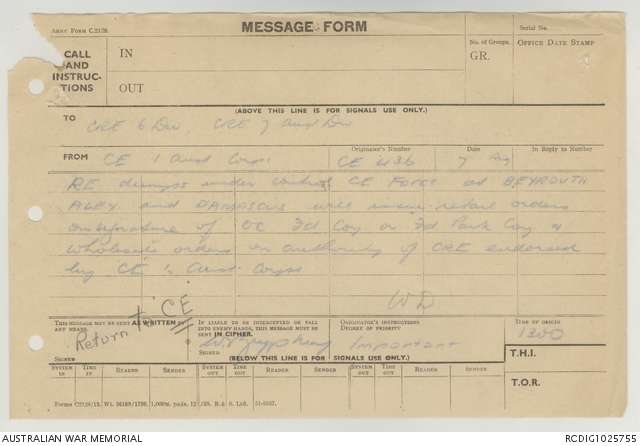 ARMY FORM C.2128.
MESSAGE FORM
Serial No.
CALL AND INSTRUCTIONS
IN
OUT
No. of Groups.
GR.
OFFICE DATE STAMP
(ABOVE THIS LINE IS FOR SIGNALS USE ONLY.)
TO
CRE 6 Div, CRE 7 Aust Div
FROM
CE 1 Aust Corps
Originator's Number
CE 436
Date
7 Aug
In Reply to Number
RE dumps under control CE Force at BEYROUTH
ALEY and DAMASCUS will issue retail orders
on signature of OC Fd Coy or Fd Park Coy &
wholesale orders on authority of CRE endorsed
by CE 1 Aust Corps
WD
THIS MESSAGE MAY BE SENT AS WRITTEN BY ANY MEANS.
Return to CE
SIGNED
IF LIABLE TO BE INTERCEPTED OR FALL INTO ENEMY HANDS, THIS MESSAGE MUST BE SENT IN CIPHER.
SIGNED
ORIGINATOR'S INSTRUCTIONS
DEGREE OF PRIORITY
Important
TIME OF ORIGIN
1300
(BELOW THIS LINE IS FOR SIGNALS USE ONLY.)
T.H.I.
SYSTEM IN
TIME IN
READER
SENDER
SYSTEM OUT
TIME OUT
READER
SENDER
SYSTEM OUT
TIME OUT
READER
SENDER
T.O.R.
AUSTRALIAN WAR MEMORIAL
RCDIG1025755